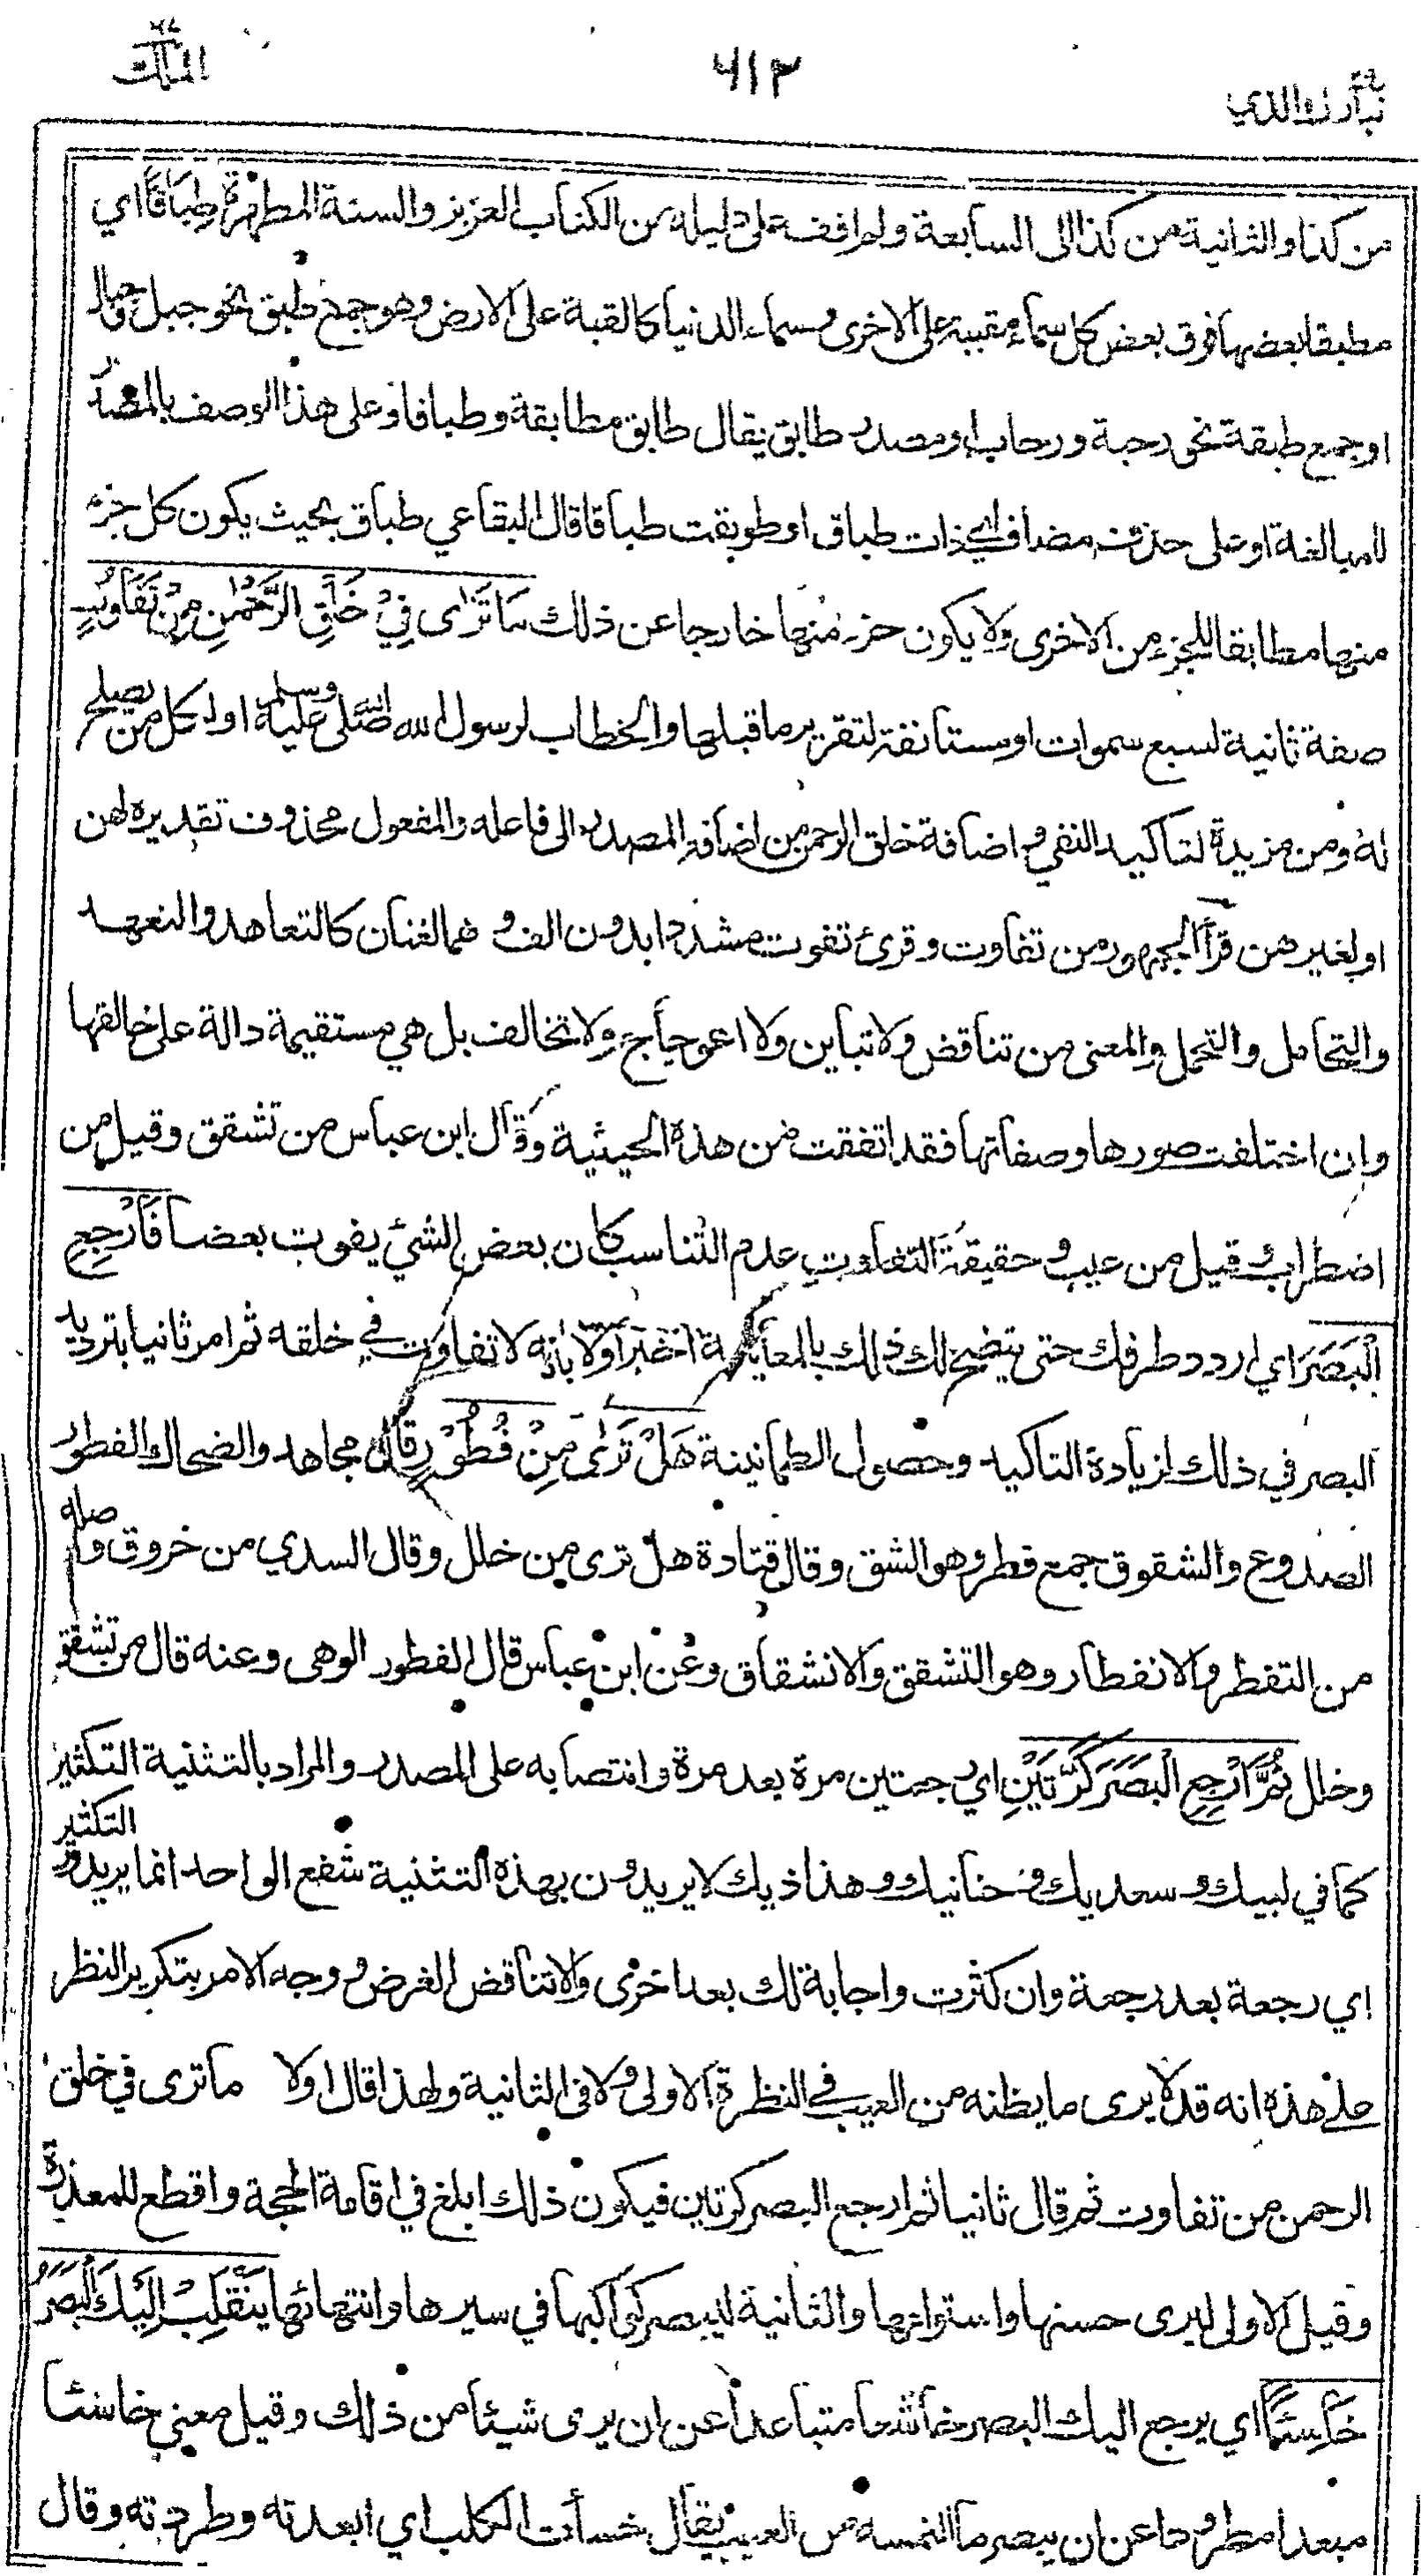 تبارك الذي ٢٩
٦١٢
الملك ٦٧
من كذا والثانية من كذا الى السابعة ولم اقف على دليله من الكتاب العزيز والسنة المطهرة طِبَاقًا اي
مطبقا بعضها فوق بعض كل سماء مقببة على الاخرى وسماء الدنيا كالقبة على الارض وهو جمع طبق نحو جبل وجبال
او جمع طبقة نحو رحبة ورحاب او مصدر طابق يقال طابق مطابقة وطباقا وعلى هذا الوصف بالمصدر
للمبالغة او على حذف مضاف اي ذات طباق او طوبقت طباقا قال البقاعي طباق بحيث يكون كل جزء
منها مطابقا للجزء من الاخرى ولا يكون جزء منها خارجا عن ذلك مَا تَرٰى فِيْ خَلْقِ الرَّحْمٰنِ مِنْ تَفَاوُتٍ
صفة ثانية لسبع سموات او مستأنفة لتقرير ما قبلها والخطاب لرسول الله صلى الله عليه وسلم او لكل من يصلح
له ومن مزيدة لتاكيد النفي واضافة خلق الرحمن من اضافة المصدر الى فاعله والمفعول محذوف تقديره لهن
او لغيرهن قرأ الجمهور من تفاوت وقرئ تفوت مشددا بدون الف و هما لغتان كالتعاهد والتعهد
والتحامل والتحمل والمعنى من تناقض ولا تباين ولا اعوجاج ولا تخالف بل هي مستقيمة دالة على خالقها
وان اختلفت صورها وصفاتها فقد اتفقت من هذه الحيثية وقال ابن عباس من تشقق وقيل من
اضطراب وقيل من عيب وحقيقة التفاوت عدم التناسب كان بعض الشئ يفوت بعضا فَارْجِعِ
الْبَصَرَ اي اردد طرفك حتى يتضح لك ذلك بالمعاينة اخبر اولا بانه لا تفاوت في خلقه ثم امر ثانيا بترديد
البصر في ذلك لزيادة التاكيد وحصول الطمانينة هَلْ تَرٰى مِنْ فُطُوْرٍ قال مجاهد والضحاك الفطور
الصدوع والشقوق جمع فطر وهو الشق وقال قتادة هل ترى من خلل وقال السدي من خروق واصله
من التفطر والانفطار وهو التشقق والانشقاق وعن ابن عباس قال الفطور الوهى وعنه قال من تشقق
وخلل ثُمَّ ارْجِعِ الْبَصَرَ كَرَّتَيْنِ اي رجعتين مرة بعد مرة وانتصابه على المصدر والمراد بالتثنية التكثير
كما في لبيك وسعديك وحنانيك وهذاذيك لا يريدون بهذه التثنية شفع الواحد انما يريدون التكثير
اي رجعة بعد رجعة وان كثرت واجابة لك بعد اخرى والا تناقض الغرض ووجه الامر بتكرير النظر
على هذه انه قد لا يرى ما يظنه من العيب في النظرة الاولى ولا في الثانية ولهذا قال اولا ما ترى في خلق
الرحمن من تفاوت ثم قال ثانيا ثم ارجع البصر كرتين فيكون ذلك ابلغ في اقامة الحجة واقطع للمعذرة
وقيل الاولى ليرى حسنها واستواءها والثانية ليبصر كواكبها في سيرها وانتهائها يَنْقَلِبْ اِلَيْكَ الْبَصَرُ
خَاسِئًا اي يرجع اليك البصر خاشعا متباعدا عن ان يرى شيئا من ذلك وقيل معنى خاسئا
مبعدا مطرودا عن ان يبصر ما التمسه من العيب يقال خسأت الكلب اي ابعدته وطردته وقال